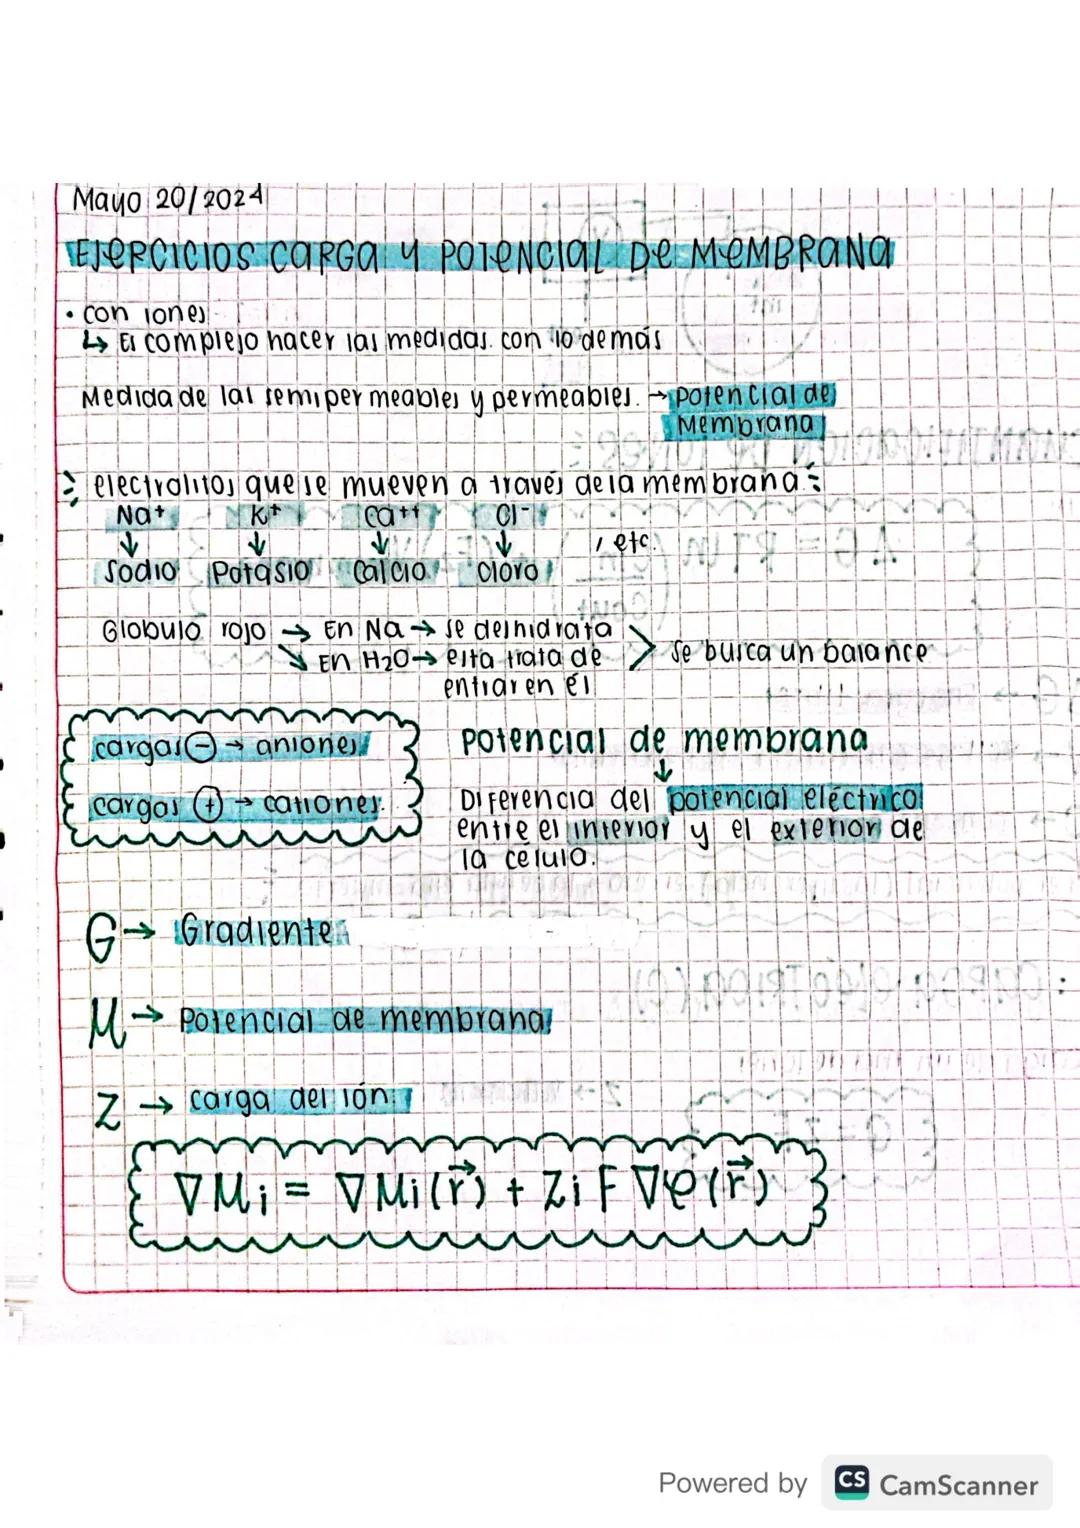 Mayo 20/2024
EJERCICIOS CARGA Y POTENCIAL DE MEMBRANA
• con iones
↳ Es complejo hacer las medidas con lo demás
Medida de las semipermeables y permeables. → Potencial de
Membrana
electrolitos que se mueven a través de la membrana:
Na+ K+ Ca++ Cl-
↓ ↓ ↓ ↓ , etc.
Sodio Potasio Calcio Cloro
Globulo rojo → En Na → se deshidrata
↘ En H2O → esta trata de > Se busca un balance
entrar en él
cargas ⊖ → aniones
cargas ⊕ → cationes.
Potencial de membrana
↓
Diferencia del potencial eléctrico
entre el interior y el exterior de
la célula.
G → Gradiente
M → Potencial de membrana
Z → carga del ión
∇Mi = ∇Mi(r⃗) + Zi F ∇φ(r⃗)
Powered by CS CamScanner